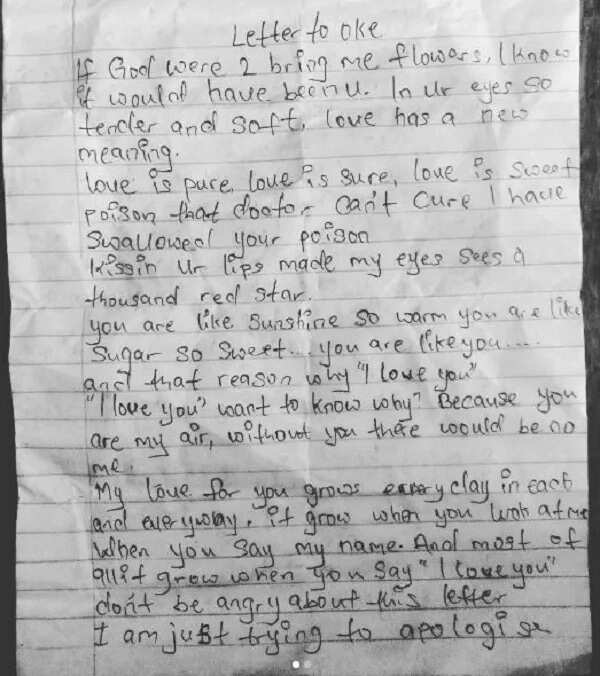 Letter to oke
If God were 2 bring me flowers, I know
it would have been u. In ur eyes so
tender and soft, love has a new
meaning.
love is pure, love is sure, love is sweet
poison that doctor can't cure I have
swallowed your poison
kissin ur lips made my eyes sees a
thousand red star.
you are like sunshine so warm you are like
sugar so sweet... you are like you.....
and that reason why "I love you"
"I love you" want to know why? Because you
are my air, without you there would be no
me.
My love for you grows every day in each
and everyway. it grow when you look at me
When you say my name. And most of
all it grow when you say "I love you"
don't be angry about this letter
I am just trying to apologise